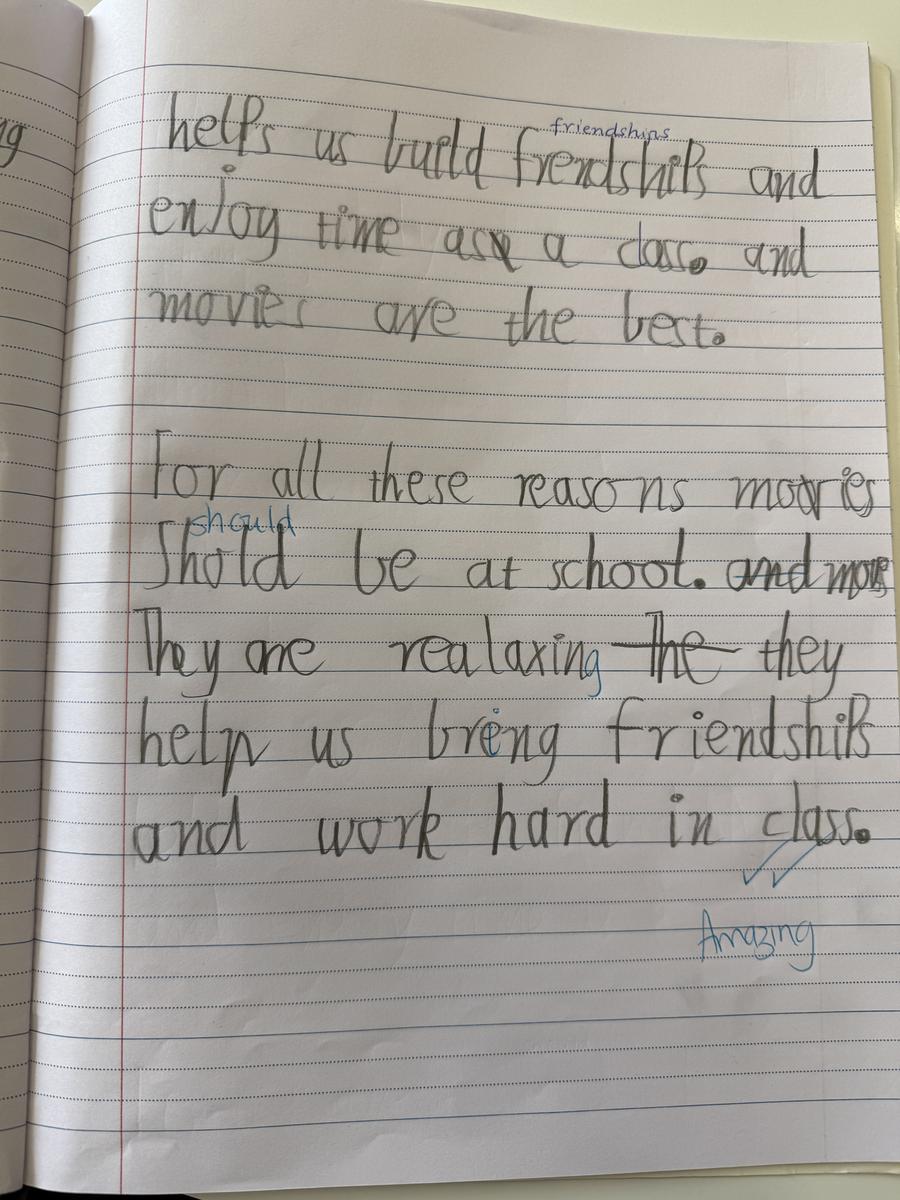 friendships
helps us build frendships and
enjoy time as a class. and
movies are the best.
For all these reasons movies
should
Shold be at school. and movies
They are realaxing the they
help us breng friendships
and work hard in class.
Amazing